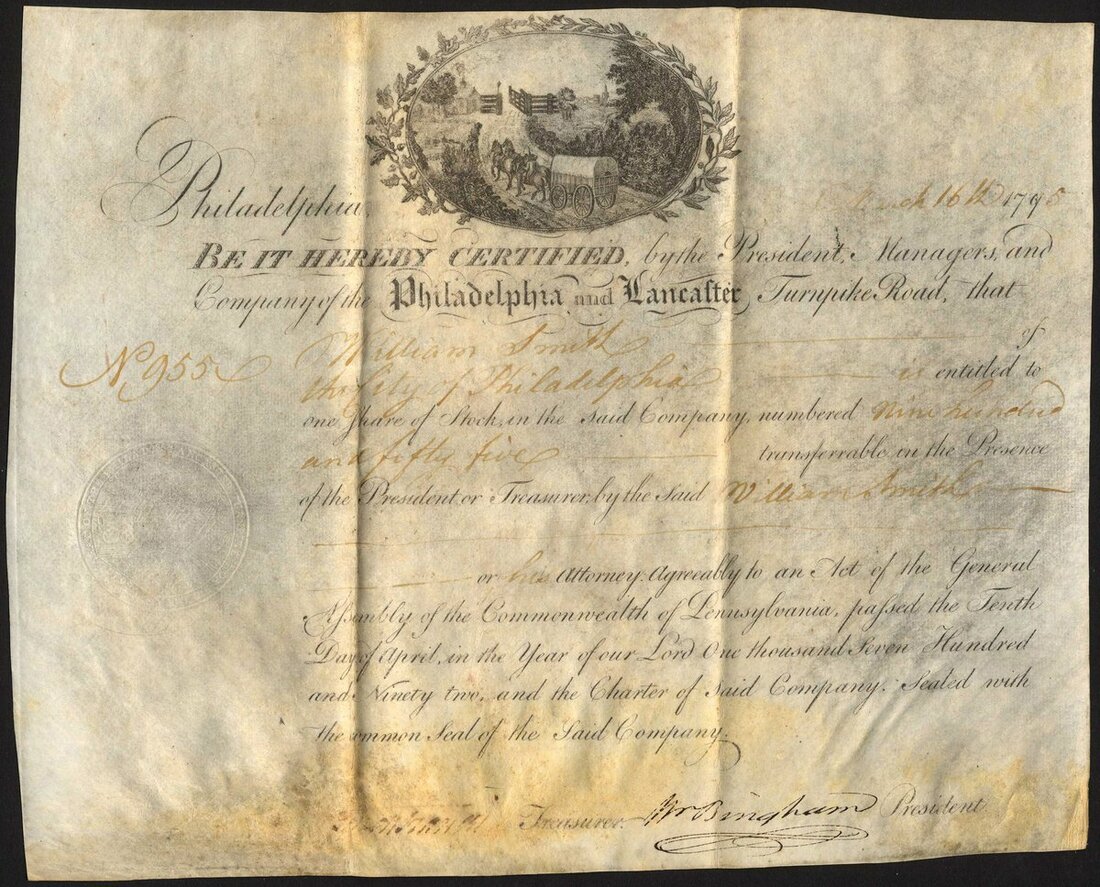 Philadelphia, March 16th 1795
BE IT HEREBY CERTIFIED, by the President, Managers, and
Company of the Philadelphia and Lancaster Turnpike Road, that
William Smith of
No 955
the City of Philadelphia is entitled to
one Share of Stock, in the said Company, numbered nine hundred
and fifty five transferrable in the Presence
of the President or Treasurer, by the said William Smith
or his Attorney. Agreeably to an Act of the General
Assembly of the Commonwealth of Pennsylvania, passed the Tenth
Day of April, in the Year of our Lord One thousand Seven Hundred
and Ninety two, and the Charter of said Company. Sealed with
the common Seal of the Said Company.
Treasurer. Wm Bingham President